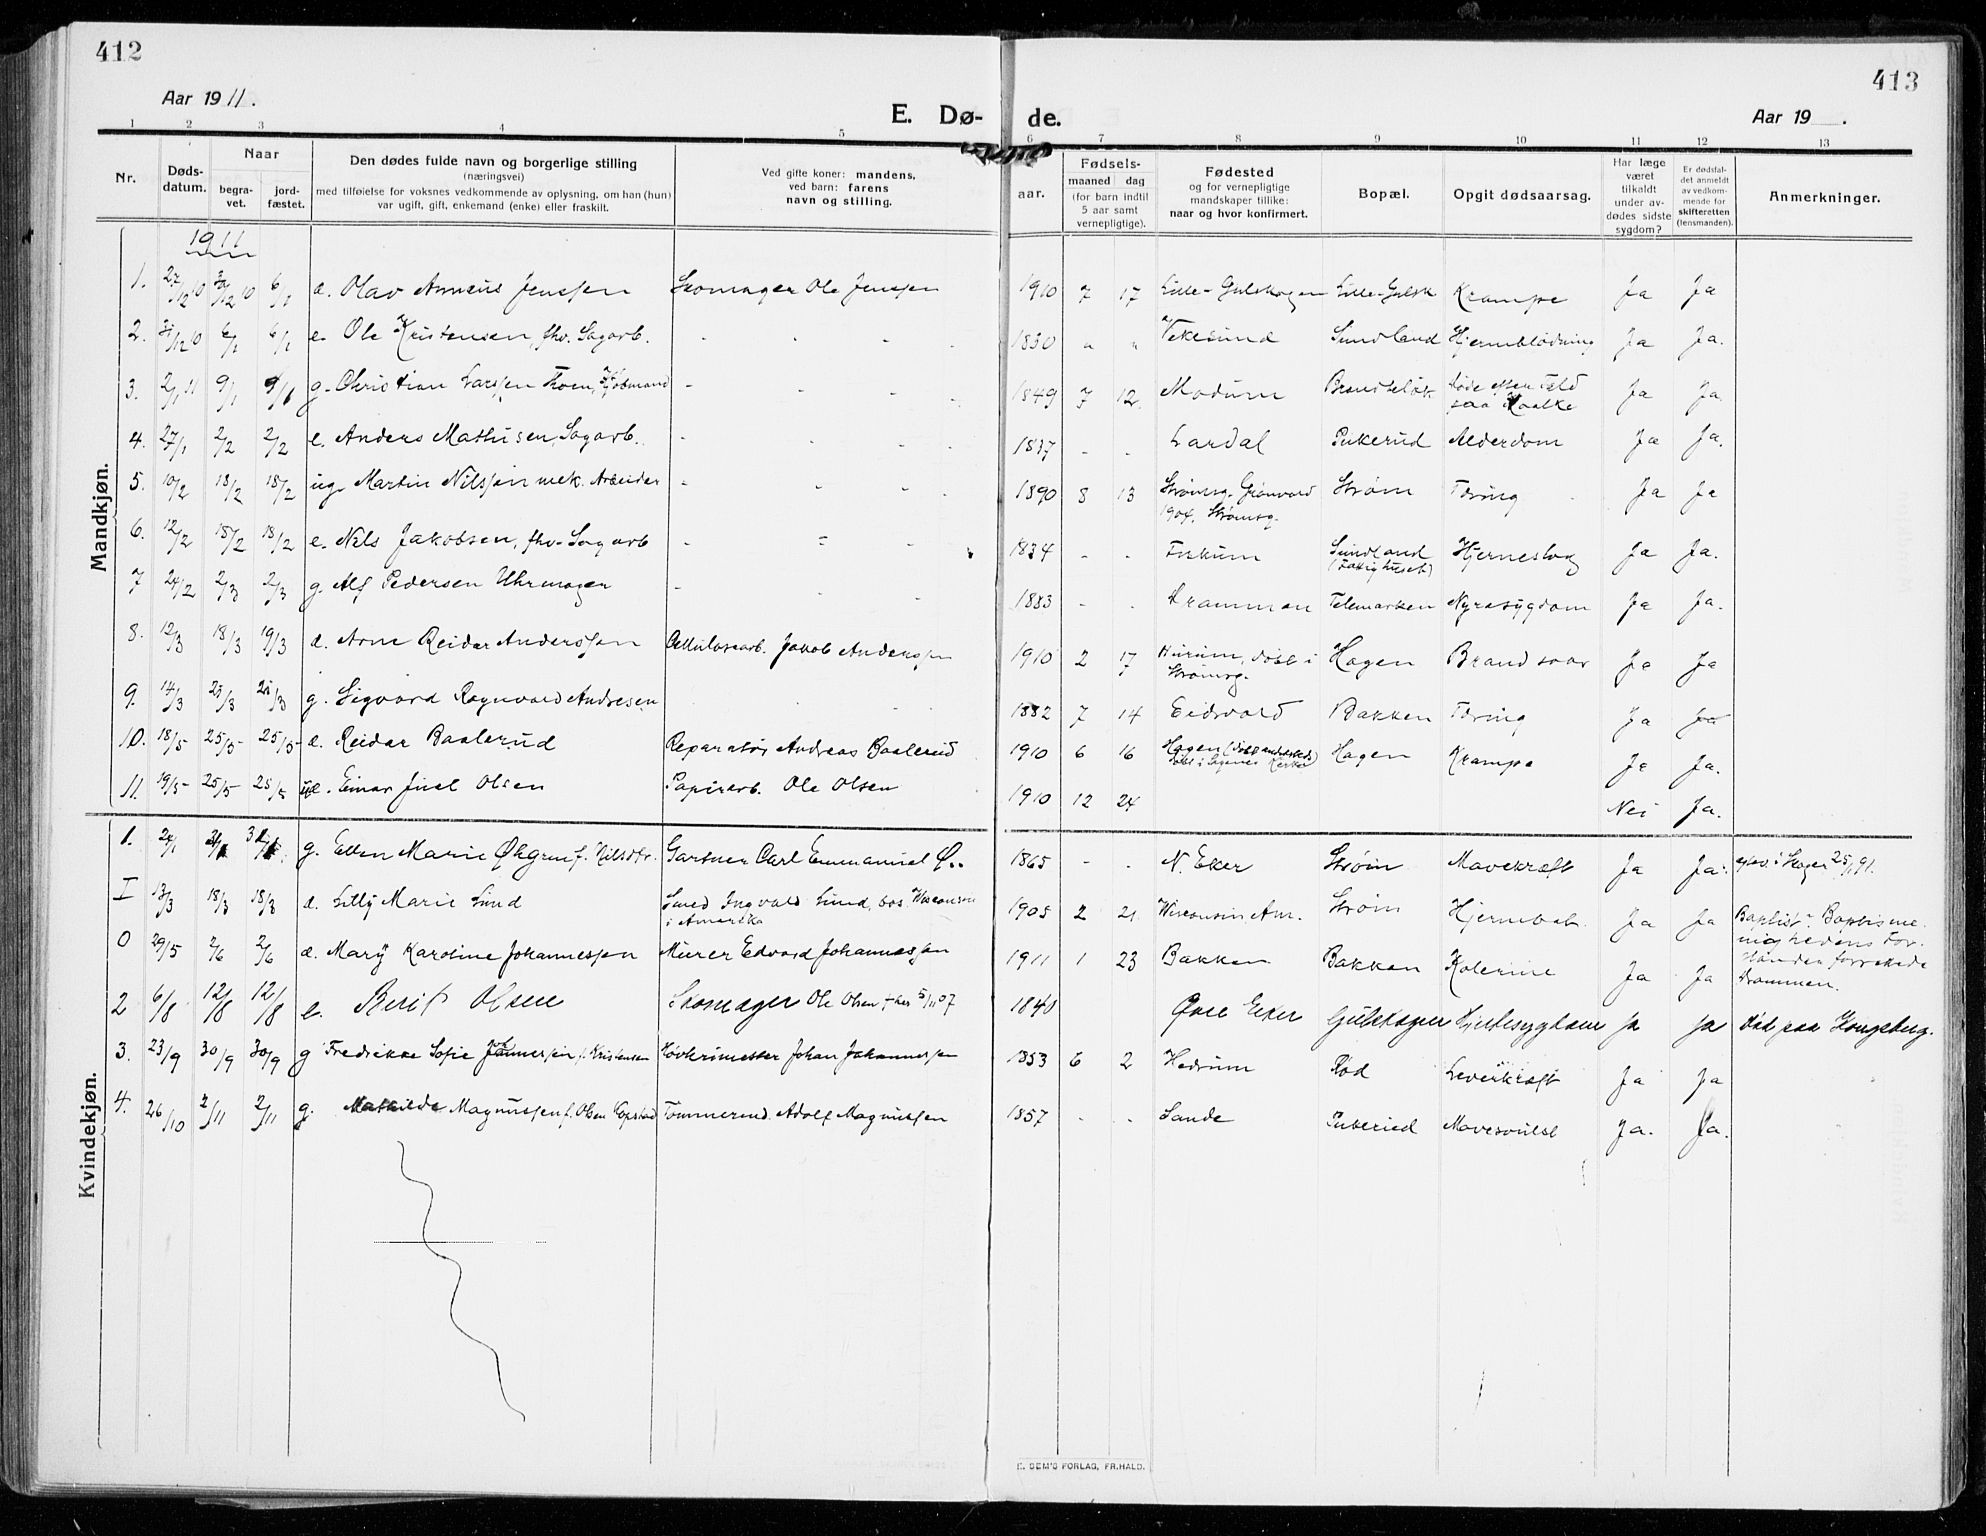 412
413
Aar 1911.
E. Dø-de.
Aar 19 .
1 2 3 4 5 6 7 8 9 10 11 12 13
Nr.
Døds-
datum.
Naar
begra-
vet.
jord-
fæstet.
Den dødes fulde navn og borgerlige stilling
(næringsvei)
med tilføielse for voksnes vedkommende av oplysning, om han (hun)
var ugift, gift, enkemand (enke) eller fraskilt.
Ved gifte koner: mandens,
ved barn: farens
navn og stilling.
aar.
Fødsels-
maaned dag
(for barn indtil
5 aar samt
vernepligtige).
Fødested
og for vernepligtige
mandskaper tillike:
naar og hvor konfirmert.
Bopæl.
Opgit dødsaarsag.
Har læge
været
tilkaldt
under av-
dødes sidste
sygdom?
Er dødsfal-
det anmeldt
av vedkom-
mende for
skifteretten
(lensmanden).
Anmerkninger.
Mandkjøn.
1911
1. 27/12 10 30/12 10 6/1 Olav Anneus Jenssen Skomager Ole Jenssen 1910 7 17 Lille-Gulskogen Lille-Gulsk Krampe Ja Ja
2. 31/12 10 6/1 6/1 e. Ole Kristensen, fhv. Sagarb. 1830 " " Vekesund Sundland Hjerneblødning Ja Ja.
3. 2/1 11 9/1 9/1 g. Christian Larssen Thoen, Kjøbmand 1849 7 12 Modum Ja Ja.
4. 27/1 2/2 2/2 e. Anders Mathisen, Sagarb. 1837 - - Lardal Pukerud Alderdom Ja Ja.
5. 10/2 18/2 18/2 ug. Martin Nilssen mek. Arbeider 1890 8 13 Strømsg. Grønvold Strøm Tæring Ja Ja
1904, Strømsg.
6. 12/2 18/2 18/2 e. Nils Jakobsen, fhv. Sagarb 1834 - - Fiskum Sundland Hjerneslag Ja Ja.
(Fattighuset)
7 24/2 2/3 2/3 g. Alf Pedersen Uhrmager 1883 - - Drammen Telemarken Nyresygdom Ja Ja.
8. 12/3 18/3 19/3 Arne Reidar Anderssen Cellulosearb. Jakob Anderssen 1910 2 17 Hurum, døbt i Hagen Brandsaar Ja Ja
Strømsg.
9. 14/3 21/3 21/3 g. Sigvard Ragnvard Andresen 1882 7 14 Eidsvold Bakken Tæring Ja Ja
10. 18/5 25/5 25/5 Reidar Baalerud Reparatør Andreas Baalerud 1910 6 16 Hagen Hagen Krampe Ja Ja.
11. 19/5 25/5 25/5 Einar Juel Olsen Papirarb. Ole Olsen 1910 12 24 Nei Ja.
Kvindekjøn.
1. 24/1 g. Ellen Marie Øhgren f. Nilsdtr. Gartner Carl Emmanuel Ø.. 1865 - - N. Eker Strøm Mavekræft Ja Ja. i Skoger 25/1 91.
I 13/3 18/3 18/3 Lilly Marie Lund Smed Ingvald Lund, bos. Wisconsin 1905 2 21 Wisconsin, Am. Strøm Hjernebet. Ja Ja Baptist. Baptistme-
i Amerika
nighedens For-
0 29/5 2/6 2/6 Mary Karoline Johannessen Murer Edvard Johannessen 1911 1 23 Bakken Bakken Kolerine Ja Ja
Drammen.
2 6/8 12/8 12/8 e. Berit Olsen Skomager Ole Olsen 5/11 07 1840 Øvre Eker Gulskogen Hjertesygdom Ja Ja Død paa Kongsberg.
3. 23/9 30/9 30/9 g Fredrikke Sofie Johannessen f. Kristensen Høvlerimester Johan Johannessen 1853 6 2 Hedrum Rød Leverkræft Ja Ja
4. 26/10 2/11 2/11 g. Mathilde Magnussen f. Olsen Kopstad Tømmermd. Adolf Magnussen 1857 - - Sande Pukerud Mavesvulst Ja. Ja.
E. SEM'S FORLAG, FR.HALD.